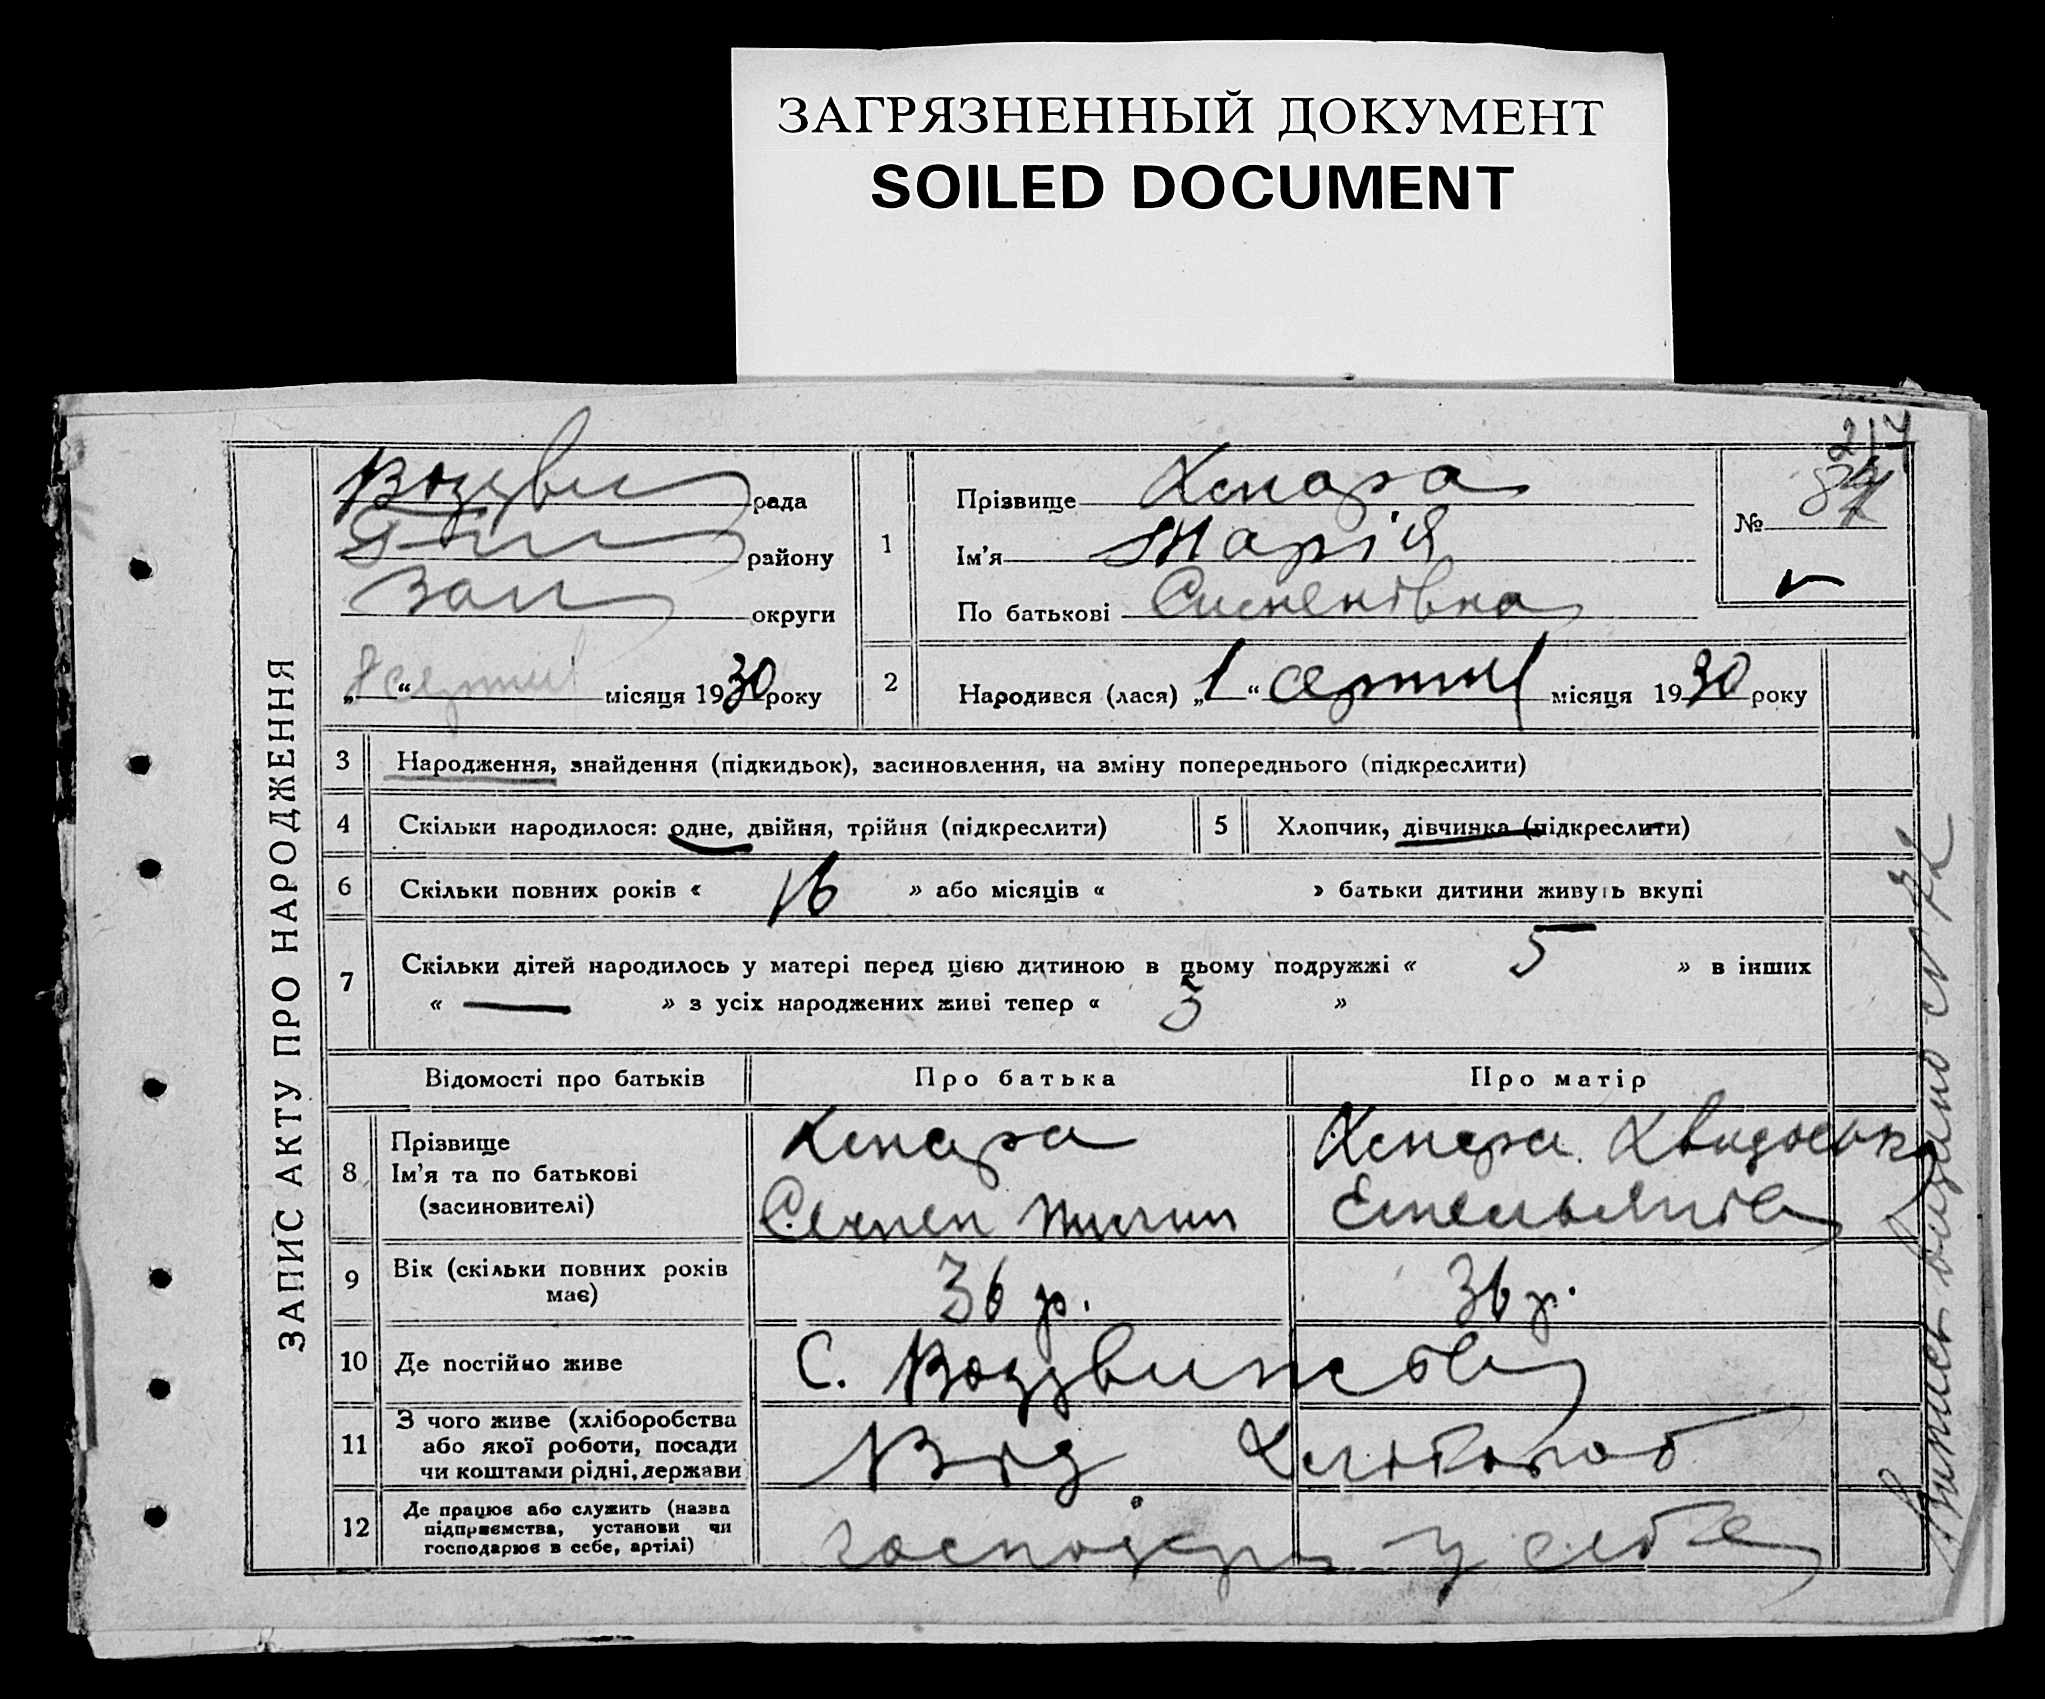 ЗАГРЯЗНЕННЫЙ ДОКУМЕНТ
SOILED DOCUMENT
ЗАПИС АКТУ ПРО НАРОДЖЕННЯ
рада
району
Зап округи
„ “ серпня місяця 1930 року
1
Прізвище
Ім'я Марія
По батькові
№
2
Народився (лася) „1“ серпня місяця 1930 року
3 Народження, знайдення (підкидьок), засиновлення, на зміну попереднього (підкреслити)
4 Скільки народилося: одне, двійня, трійня (підкреслити)
5 Хлопчик, дівчинка (підкреслити)
6 Скільки повних років « 16 » або місяців « » батьки дитини живуть вкупі
7 Скільки дітей народилось у матері перед цією дитиною в цьому подружжі « 5 » в інших
« — » з усіх народжених живі тепер « 5 »
Відомості про батьків Про батька Про матір
8 Прізвище
Ім'я та по батькові
(засиновителі)
9 Вік (скільки повних років
має)
36 р. 36 р.
10 Де постійно живе С.
11 З чого живе (хліборобства
або якої роботи, посади
чи коштами рідні, держави
Від Хлібороб
12 Де працює або служить (назва
підприємства, установи чи
господарює в себе, артілі)
у себе
Випись видано